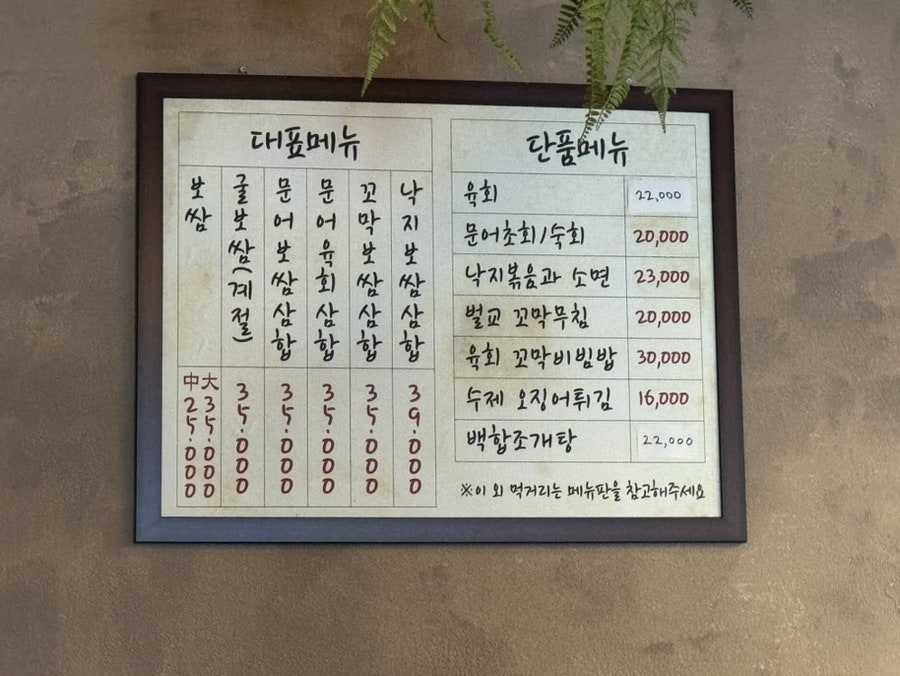 대표메뉴
보쌈
中 25.000
大 35.000
굴보쌈(계절)
35.000
문어보쌈삼합
35.000
문어육회삼합
35.000
꼬막보쌈삼합
35.000
낙지보쌈삼합
39.000
단품메뉴
육회 22,000
문어초회/숙회 20,000
낙지볶음과 소면 23,000
벌교 꼬막무침 20,000
육회 꼬막비빔밥 30,000
수제 오징어튀김 16,000
백합조개탕 22,000
※이 외 먹거리는 메뉴판을 참고해주세요